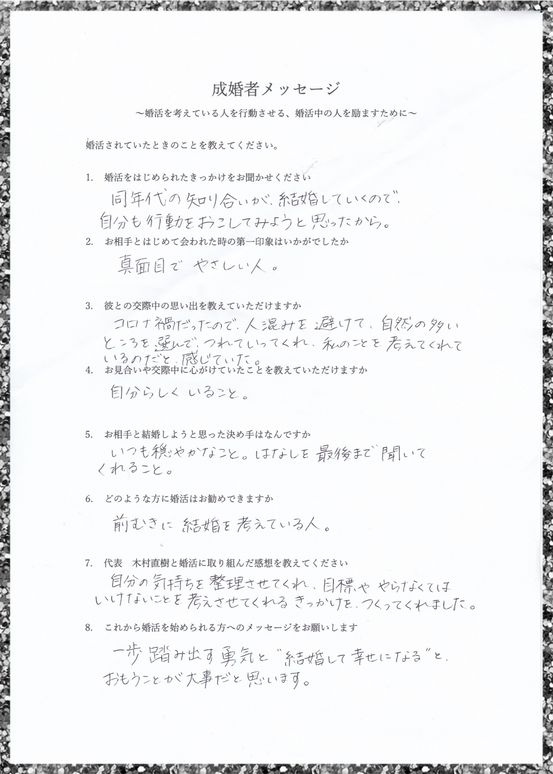 成婚者メッセージ
～婚活を考えている人を行動させる、婚活中の人を励ますために～
婚活されていたときのことを教えてください。
1. 婚活をはじめられたきっかけをお聞かせください
同年代の知り合いが、結婚していくので、
自分も行動をおこしてみようと思ったから。
2. お相手とはじめて会われた時の第一印象はいかがでしたか
真面目で やさしい人。
3. 彼との交際中の思い出を教えていただけますか
コロナ禍だったので、人混みを避けて、自然の多い
ところを選んで、つれていってくれ、私のことを考えてくれて
いるのだと、感じていた。
4. お見合いや交際中に心がけていたことを教えていただけますか
自分らしく いること。
5. お相手と結婚しようと思った決め手はなんですか
いつも穏やかなこと。はなしを最後まで聞いて
くれること。
6. どのような方に婚活はお勧めできますか
前むきに 結婚を考えている人。
7. 代表 木村直樹と婚活に取り組んだ感想を教えてください
自分の気持ちを整理させてくれ、目標や やらなくては
いけないことを考えさせてくれる きっかけを、つくってくれました。
8. これから婚活を始められる方へのメッセージをお願いします
一歩踏み出す勇気と "結婚して幸せになる" と、
おもうことが大事だと思います。